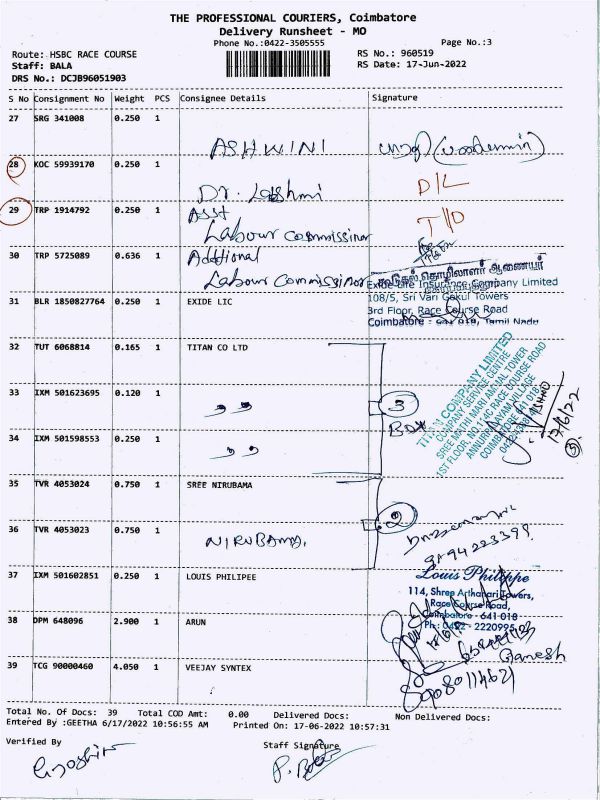 THE PROFESSIONAL COURIERS, Coimbatore
Delivery Runsheet - MO
Phone No.:0422-3505555
Page No.:3
Route: HSBC RACE COURSE
RS No.: 960519
Staff: BALA
RS Date: 17-Jun-2022
DRS No.: DCJB96051903
S No Consignment No Weight PCS Consignee Details Signature
27 SRG 341008 0.250 1
ASHWINI
28 KOC 59939170 0.250 1
Dr. Lakshmi D/L
29 TRP 1914792 0.250 1 Asst T/D
Labour Commissinor
30 TRP 5725089 0.636 1 Additional
Labour Commissinor
கூடுதல் தொழிலாளர் ஆணையர்
31 BLR 1850827764 0.250 1 EXIDE LIC
Exide Life Insurance Company Limited
108/5, Sri Vari Gokul Towers
3rd Floor, Race Course Road
Coimbatore - 641 018, Tamil Nadu
32 TUT 6068814 0.165 1 TITAN CO LTD
33 IXM 501623695 0.120 1 ,, 3
BOX
34 IXM 501598553 0.250 1 ,,
TITAN COMPANY LIMITED
COMPANY SERVICE CENTRE
SREE MATHI MARI AMMAL TOWER
1ST FLOOR, NO.114C RACE COURSE ROAD
COIMBATORE 641 018
17/6/22
35 TVR 4053024 0.750 1 SREE NIRUBAMA
2
36 TVR 4053023 0.750 1
NIRUBAMA.
37 IXM 501602851 0.250 1 LOUIS PHILIPEE
Louis Philippe
114, Shree Arthanari Towers,
Race Course Road,
Coimbatore - 641 018
Ph: 0422 - 2220995
38 DPM 648096 2.900 1 ARUN
Ganesh
39 TCG 90000460 4.050 1 VEEJAY SYNTEX
Total No. Of Docs: 39 Total COD Amt: 0.00 Delivered Docs: Non Delivered Docs:
Entered By :GEETHA 6/17/2022 10:56:55 AM Printed On: 17-06-2022 10:57:31
Verified By Staff Signature